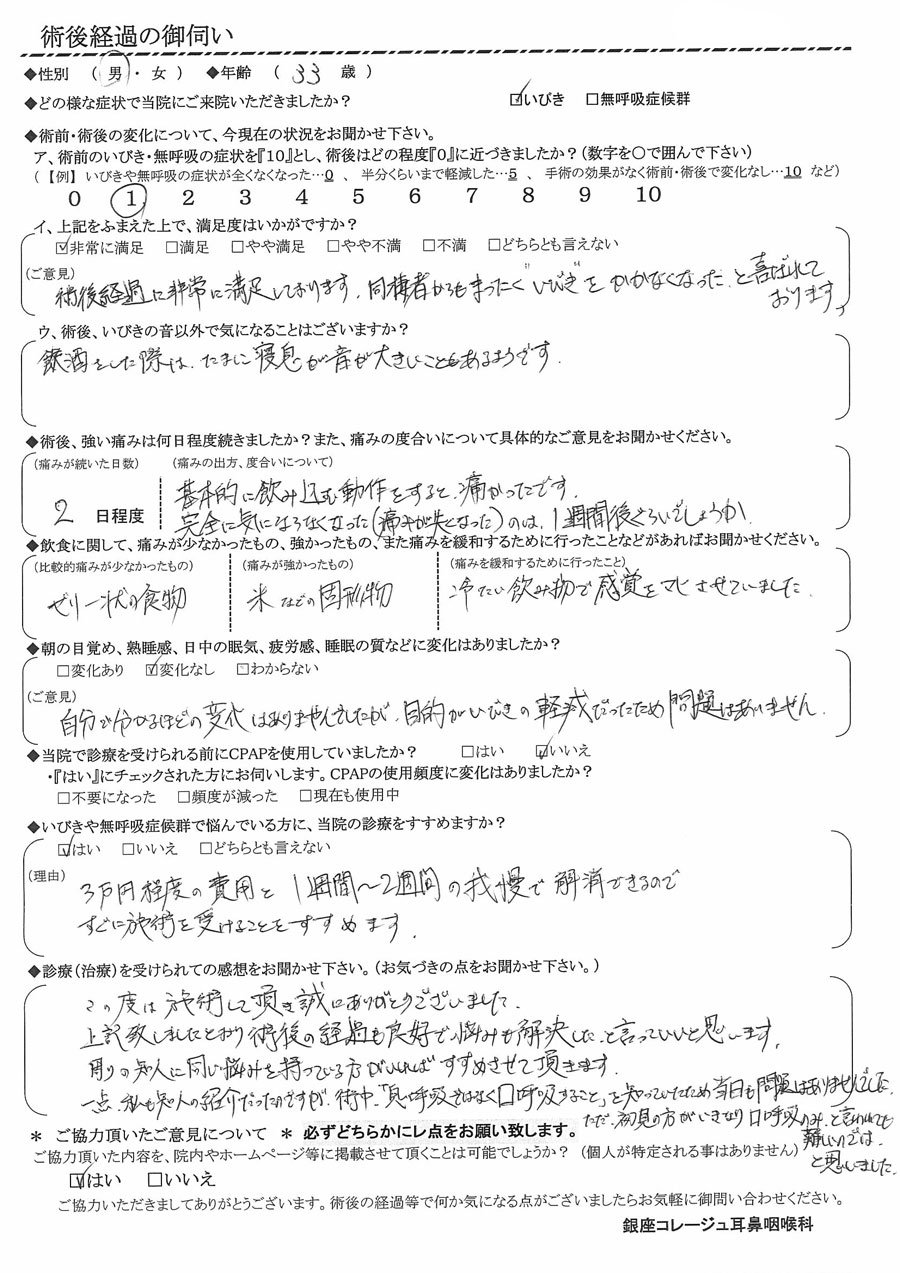 術後経過の御伺い
◆性別 (男・女) ◆年齢 (33 歳)
◆どの様な症状で当院にご来院いただきましたか? ☑いびき □無呼吸症候群
◆術前・術後の変化について、今現在の状況をお聞かせ下さい。
ア、術前のいびき・無呼吸の症状を『10』とし、術後はどの程度『0』に近づきましたか?(数字を○で囲んで下さい)
(【例】いびきや無呼吸の症状が全くなくなった…0 、 半分くらいまで軽減した…5 、 手術の効果がなく術前・術後で変化なし…10 など)
0 1 2 3 4 5 6 7 8 9 10
イ、上記をふまえた上で、満足度はいかがですか?
☑非常に満足 □満足 □やや満足 □やや不満 □不満 □どちらとも言えない
(ご意見)
術後経過に非常に満足しております。同棲者からもまったく"いびき"をかかなくなった。と喜ばれて
おります。
ウ、術後、いびきの音以外で気になることはございますか?
飲酒をした際は、たまに寝息が音が大きいこともあるようです。
◆術後、強い痛みは何日程度続きましたか?また、痛みの度合いについて具体的なご意見をお聞かせください。
(痛みが続いた日数) (痛みの出方、度合いについて)
2 日程度
基本的に飲み込む動作をすると、痛かったです。
完全に気にならなくなった(痛みが失くなった)のは、1週間後ぐらいでしょうか。
◆飲食に関して、痛みが少なかったもの、強かったもの、また痛みを緩和するために行ったことなどがあればお聞かせください。
(比較的痛みが少なかったもの) (痛みが強かったもの) (痛みを緩和するために行ったこと)
ゼリー状の食物 米などの固形物 冷たい飲み物で感覚をマヒさせていました。
◆朝の目覚め、熟睡感、日中の眠気、疲労感、睡眠の質などに変化はありましたか?
□変化あり ☑変化なし □わからない
(ご意見)
自分で分かるほどの変化はありませんでしたが、目的がいびきの軽減だったため問題はありません。
◆当院で診療を受けられる前にCPAPを使用していましたか? □はい ☑いいえ
・『はい』にチェックされた方にお伺いします。CPAPの使用頻度に変化はありましたか?
□不要になった □頻度が減った □現在も使用中
◆いびきや無呼吸症候群で悩んでいる方に、当院の診療をすすめますか?
☑はい □いいえ □どちらとも言えない
(理由)
3万円程度の費用と1週間〜2週間の我慢で解消できるので
すぐに施術を受けることをすすめます。
◆診療(治療)を受けられての感想をお聞かせ下さい。(お気づきの点をお聞かせ下さい。)
この度は施術して頂き誠にありがとうございました。
上記致しましたとおり術後の経過も良好で、悩みも解決した。と言っていいと思います。
周りの知人に同じ悩みを持っている方がいればすすめさせて頂きます。
一点、私も知人の紹介だったのですが、術中、「鼻呼吸ではなく口呼吸すること」を知っていたため当日も問題はありませんでした。
ただ、初見の方がいきなり口呼吸のみ。と言われても
難しいのでは。
と思いました。
* ご協力頂いたご意見について * 必ずどちらかにレ点をお願い致します。
ご協力頂いた内容を、院内やホームページ等に掲載させて頂くことは可能でしょうか?(個人が特定される事はありません)
☑はい □いいえ
ご協力いただきましてありがとうございます。術後の経過等で何か気になる点がございましたらお気軽に御問い合わせください。
銀座コレージュ耳鼻咽喉科